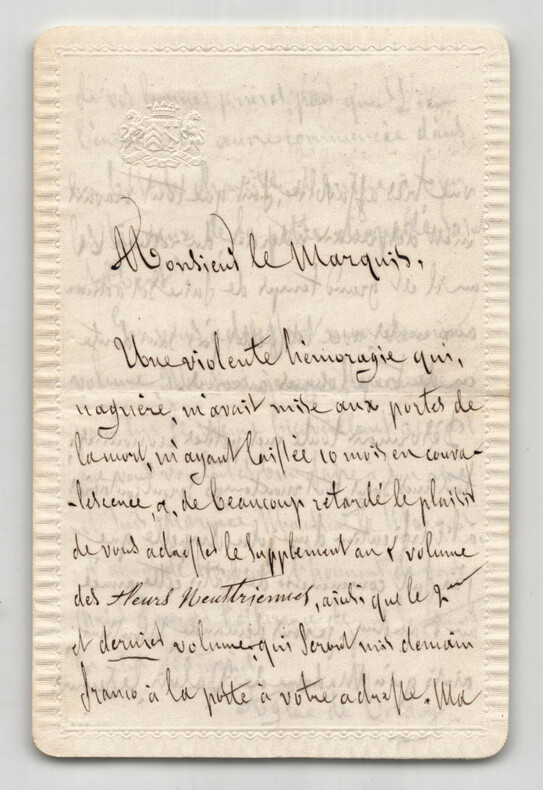 Monsieur le Marquis,
Une violente hémoragie qui,
naguière, m'avait mise aux portes de
la mort, m'ayant laissée 10 mois en conva-
-lescence, a, de beaucoup retardé le plaisir
de vous adresser le Supplement au volume
des Fleurs Neustriennes, ainsi que le 2me
et dernier volume, qui seront mis demain
franco à la poste à votre adresse. Ma